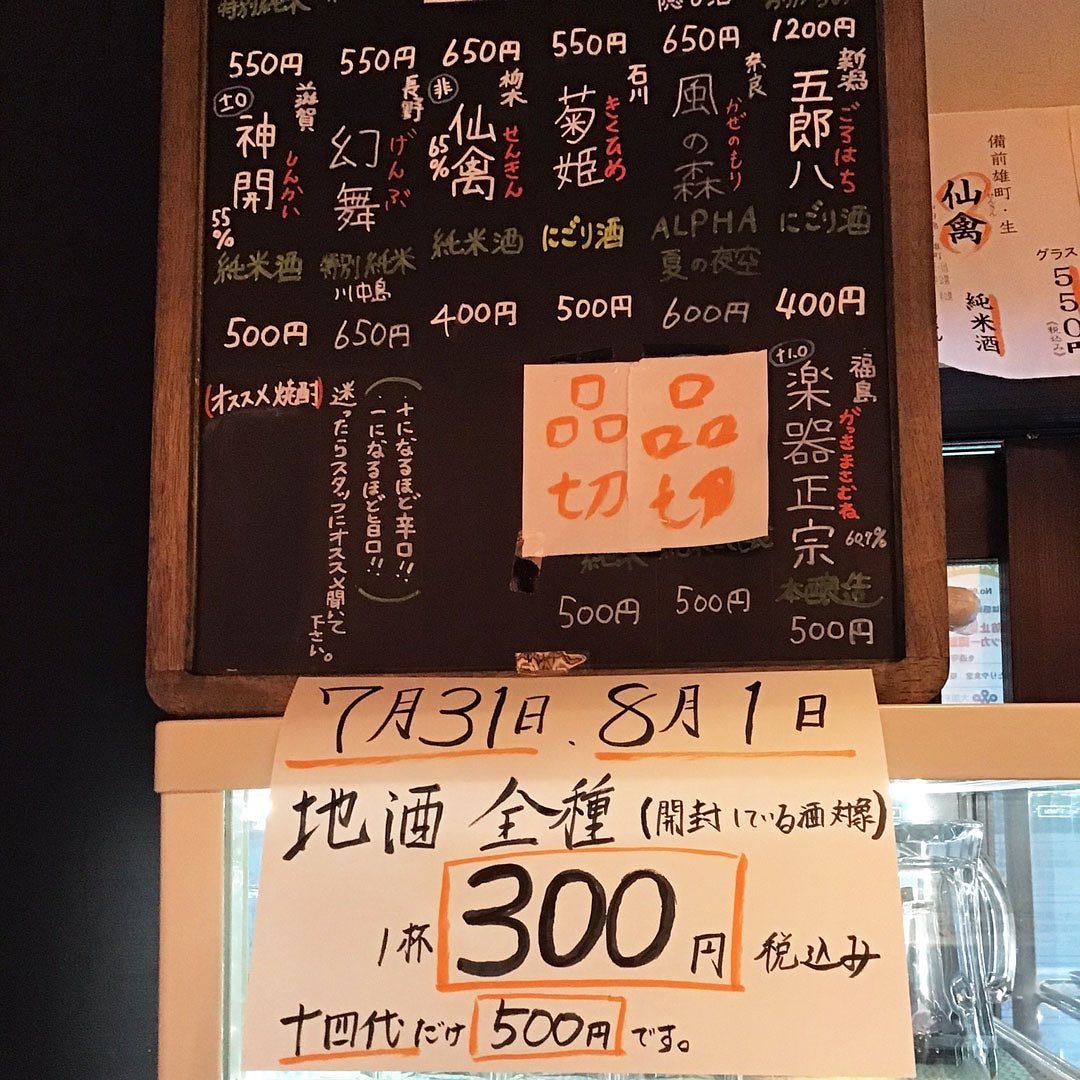 特別純米
1200円
650円
550円
650円
550円
550円
新潟
五郎八
ごろはち
にごり酒
400円
奈良
風の森
かぜのもり
ALPHA
夏の夜空
600円
石川
菊姫
きくひめ
にごり酒
500円
栃木
非
仙禽
せんきん
65%
純米酒
400円
長野
幻舞
げんぶ
特別純米
川中島
650円
滋賀
±0
神開
しんかい
55%
純米酒
500円
福島
+1.0
楽器正宗
がっきまさむね
60,7%
本醸造
500円
品切
500円
品切
純米
500円
(+になるほど辛口!!)
(-になるほど旨口!!)
迷ったらスタッフにオススメ聞いて
下さい。
(オススメ焼酎)
備前雄町・生
仙禽
せんきん
純米酒
グラス
550円
(税込み)
7月31日、8月1日
地酒 全種(開封している酒対象)
1杯 300円 税込み
十四代だけ 500円です。